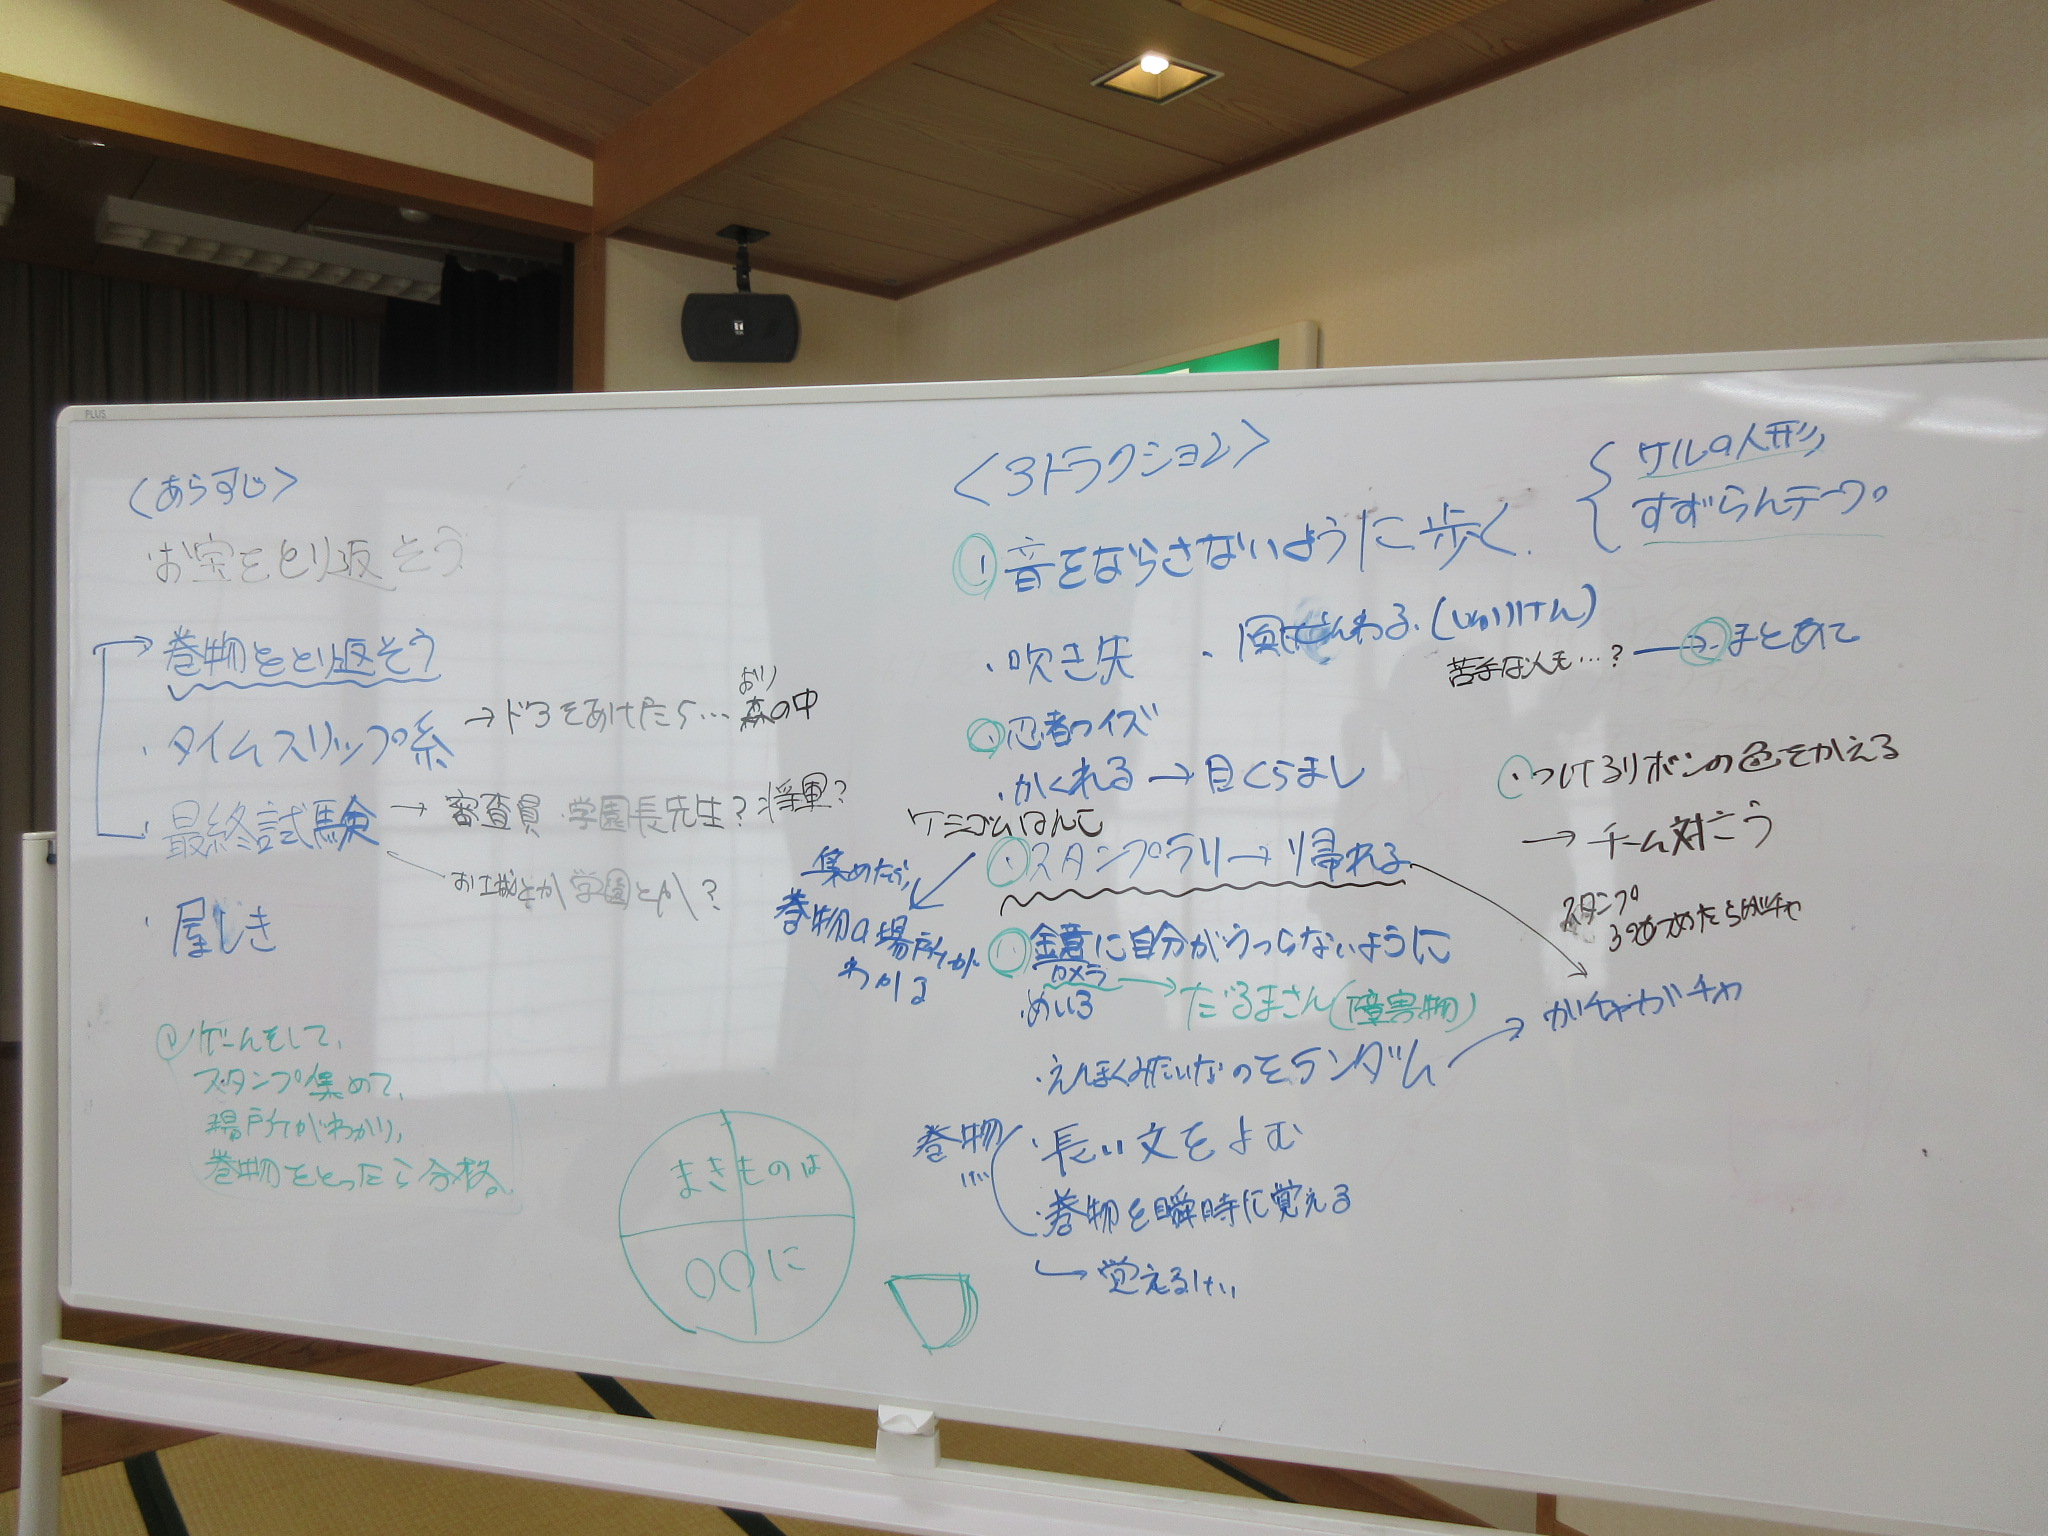 PLUS
<あらすじ>
お宝をとり返そう
巻物をとり返そう
・タイムスリップ系 → ドアをあけたら… 森の中
・最終試験 → 審査員・学園長先生?将軍?
お城とか学園とか?
・屋しき
ゲームをして、
スタンプ集めて、
場所がわかり、
巻物をとったら合格。
まきものは
〇〇に
<アトラクション>
① 音をならさないように歩く。
人形
すずらんテープ
・吹き矢
(しゅりけん)
苦手な人も…? → まとあて
・忍者クイズ
・かくれる → 目くらまし
ケシゴムはんこ
・スタンプラリー → 帰れる
集めたら、
巻物の場所が
わかる
・鏡に自分がうつらないように
カメラ → だるまさん(障害物)
・めいろ
みたいなのをランダム
・つけるリボンの色をかえる
→ チーム対こう
スタンプ
あつめたらガチャ
ガチャガチャ
巻物
・長い文をよむ
・巻物を瞬時に覚える
→ 覚える